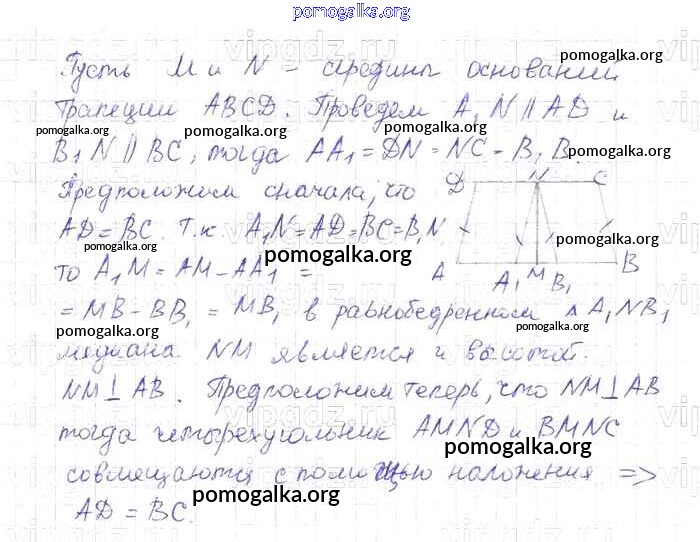 pomogalka.org
Пусть M и N – середины оснований
трапеции ABCD. Проведем A₁N ∥ AD и
B₁N ∥ BC, тогда AA₁ = DN = NC – B₁B.
Предположим сначала, что
AD = BC. Т.к. A₁N = AD = BC = B₁N
то A₁M = AM – AA₁ =
= MB – BB₁ = MB₁ в равнобедренном △ A₁NB₁
медиана NM является и высотой.
NM ⊥ AB. Предположим теперь, что NM ⊥ AB
тогда четырехугольник AMND и BMNC
совмещаются с помощью наложения =>
AD = BC.
D N C
A A₁ M B₁ B
pomogalka.org
pomogalka.org
pomogalka.org
pomogalka.org
pomogalka.org
pomogalka.org
pomogalka.org
pomogalka.org
pomogalka.org
pomogalka.org
pomogalka.org
pomogalka.org
pomogalka.org